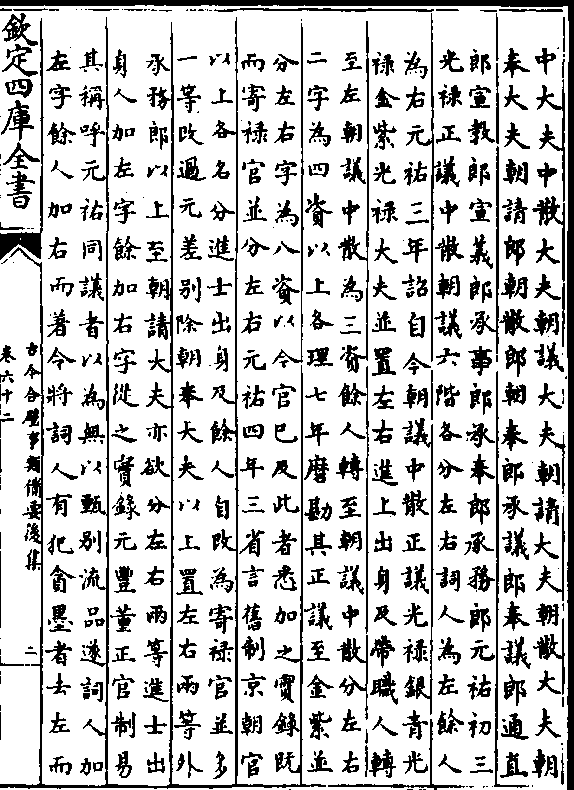 中大夫中散大夫朝議大夫朝請大夫朝散大夫朝
奉大夫朝請郎朝散郎朝奉郎承議郎奉議郎通直
郎宣教郎宣義郎承事郎承奉郎承務郎元祐初三
光禄正議中散朝議六階各分左右詞人為左餘人
為右元祐三年詔自今朝議中散正議光禄銀青光
禄金紫光禄大夫並置左右進士出身及帶職人轉
至左朝議中散為三資餘人轉至朝議中散分左右
二字為四資以上各理七年磨勘其正議至金紫並
分左右字為八資以今官已及此者悉加之實錄既
而寄禄官並分左右元祐四年三省言舊制京朝官
以上各名分進士出身及餘人自改為寄禄官並多
一等改過元差别除朝奉大夫以上置左右兩等外
承務郎以上至朝請大夫亦欲分左右兩等進士出
身人加左字餘加右字從之實錄元豐董正官制易
其稱呼元祐同議者以為無以甄别流品遂詞人加
左字餘人加右而著令將詞人有犯貪墨者去左而
欽定四庫全書
古今合璧事類備要後集
卷六十二
二